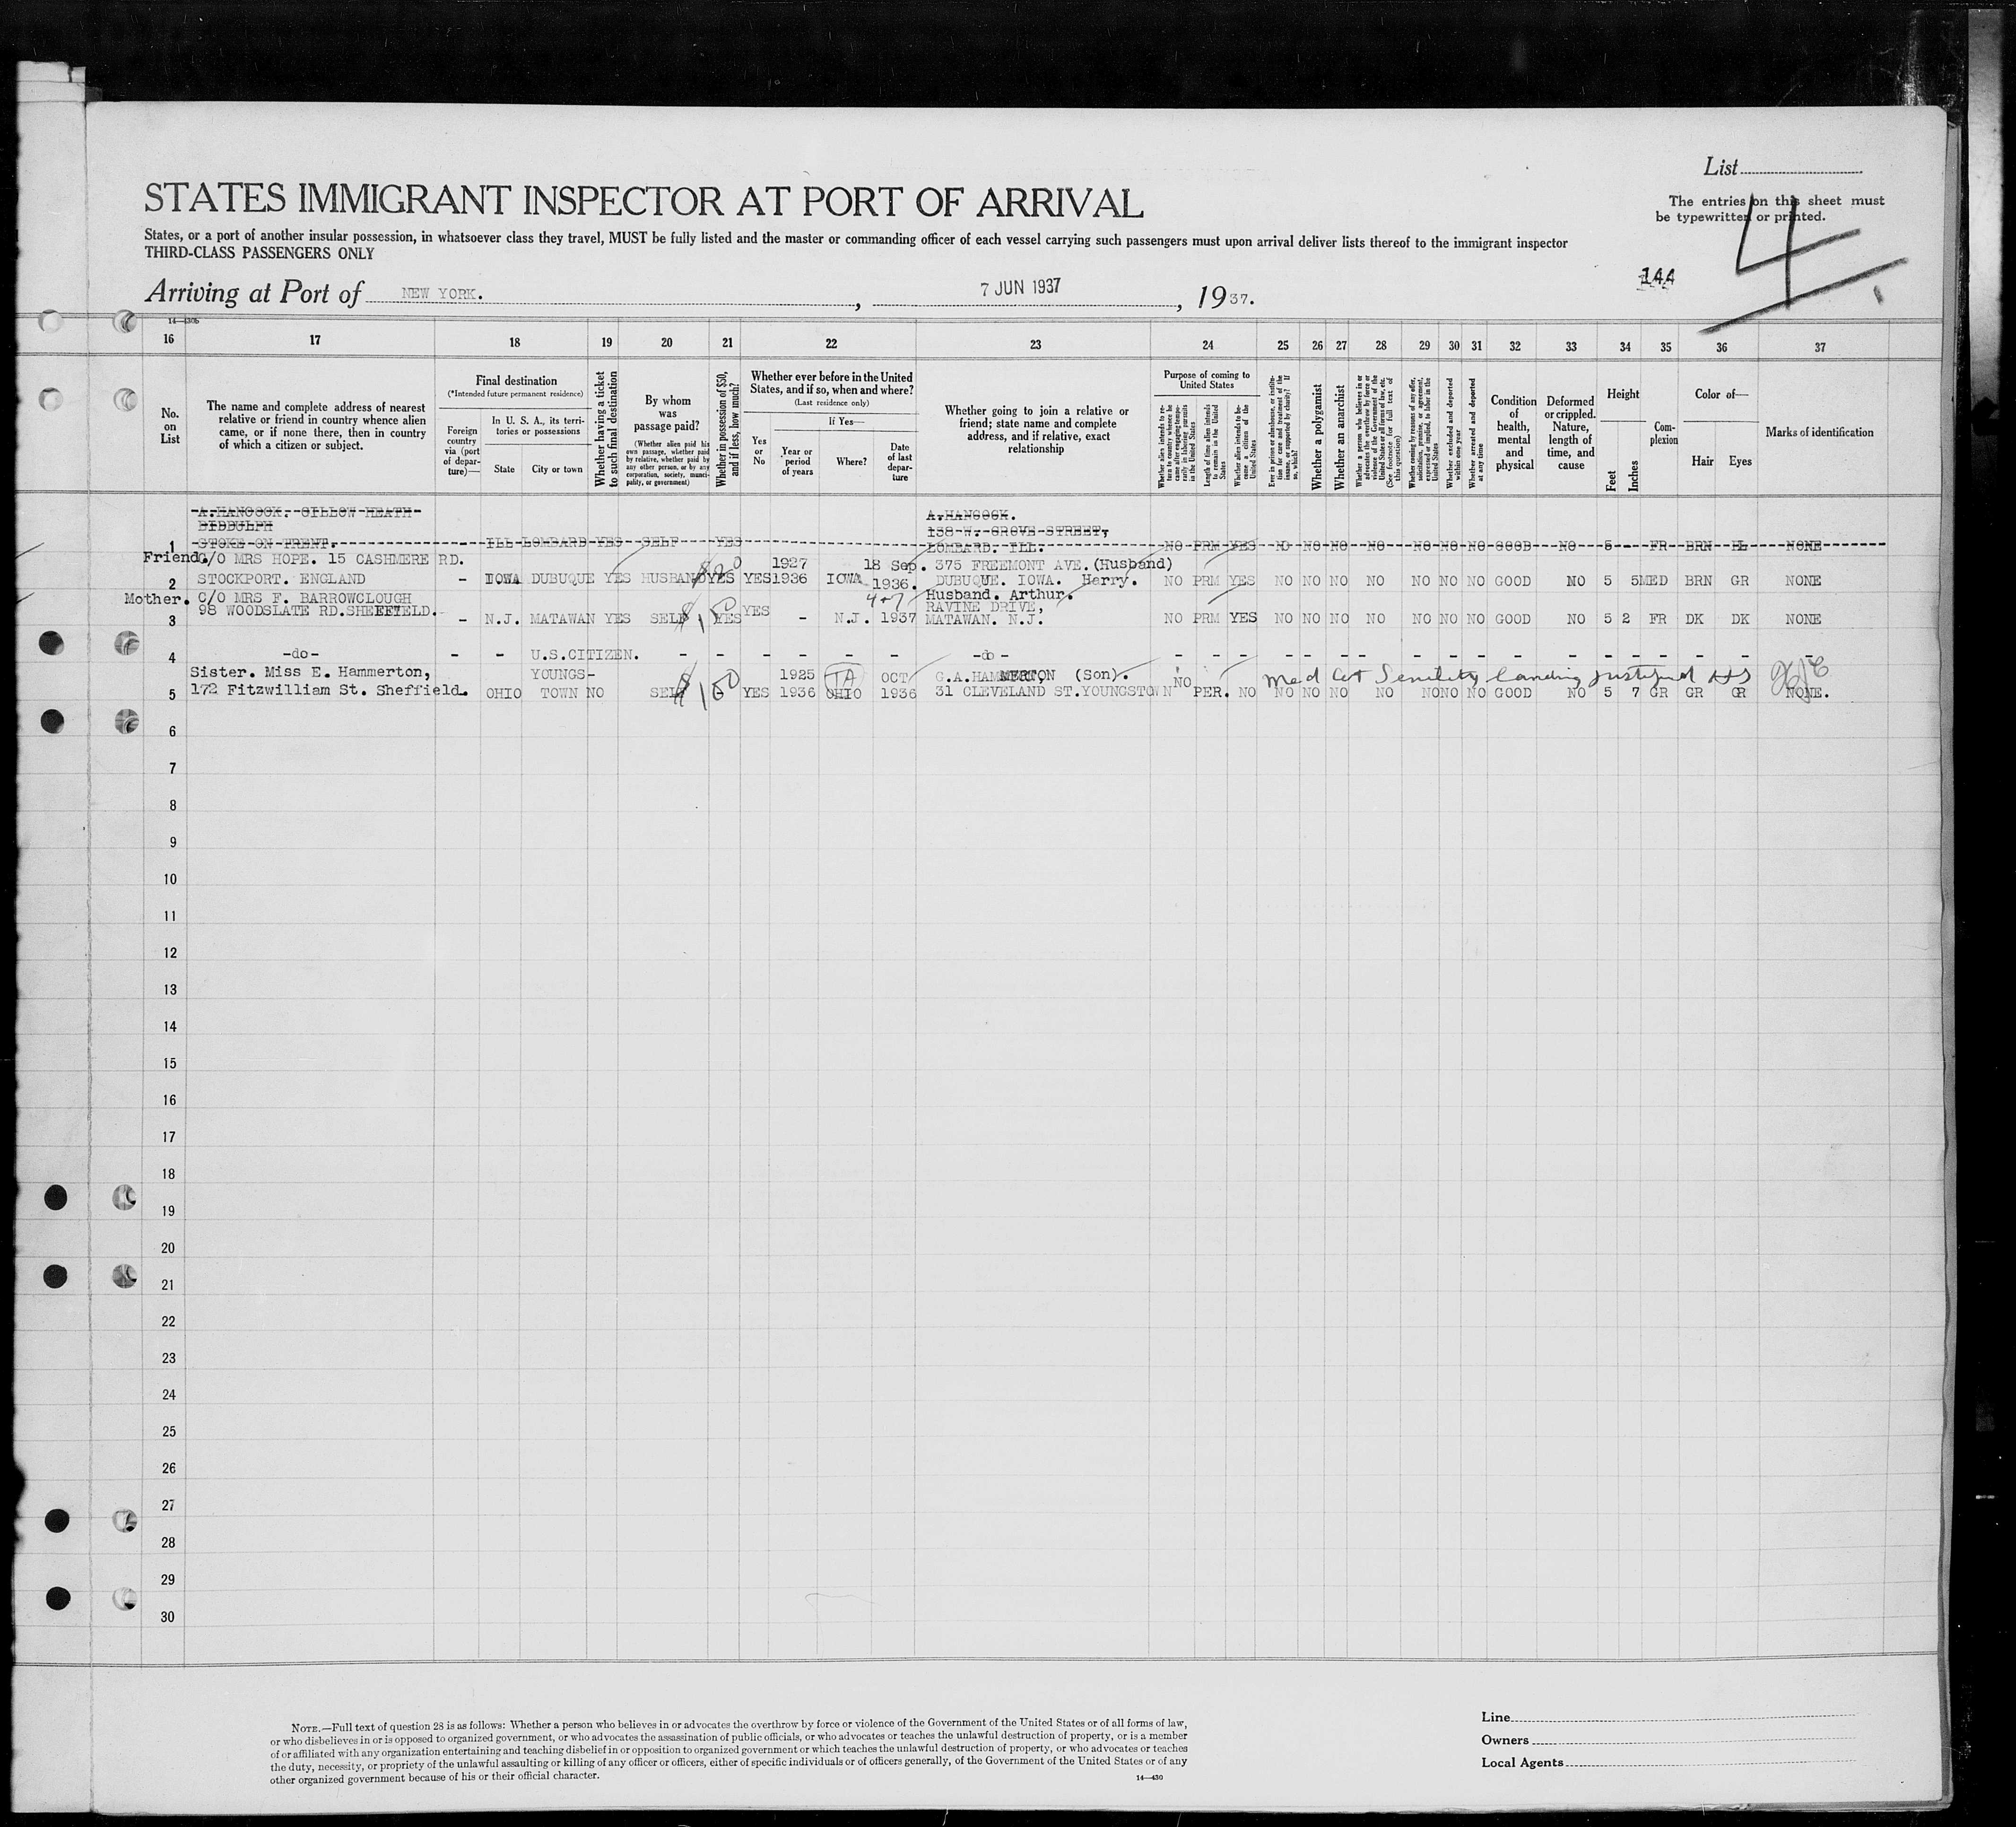 List
STATES IMMIGRANT INSPECTOR AT PORT OF ARRIVAL
The entries on this sheet must
be typewritten or printed.
4
States, or a port of another insular possession, in whatsoever class they travel, MUST be fully listed and the master or commanding officer of each vessel carrying such passengers must upon arrival deliver lists thereof to the immigrant inspector
THIRD-CLASS PASSENGERS ONLY
144
Arriving at Port of NEW YORK. , 7 JUN 1937 , 1937.
16 17 18 19 20 21 22 23 24 25 26 27 28 29 30 31 32 33 34 35 36 37
No.
on
List
The name and complete address of nearest
relative or friend in country whence alien
came, or if none there, then in country
of which a citizen or subject.
Final destination
(*Intended future permanent residence)
Foreign
country
via (port
of depar-
ture)—
In U. S. A., its terri-
tories or possessions
State City or town
Whether having a ticket
to such final destination
By whom
was
passage paid?
(Whether alien paid his
own passage, whether paid
by relative, whether paid by
any other person, or by any
corporation, society, munici-
pality, or government)
Whether in possession of $50,
and if less, how much?
Whether ever before in the United
States, and if so, when and where?
(Last residence only)
Yes
or
No
If Yes—
Year or
period
of years
Where?
Date
of last
depar-
ture
Whether going to join a relative or
friend; state name and complete
address, and if relative, exact
relationship
Purpose of coming to
United States
Whether alien intends to re-
turn to country whence he
came after engaging tempo-
rarily in laboring pursuits
in the United States
Length of time alien intends
to remain in the United
States
Whether alien intends to be-
come a citizen of the
United States
Ever in prison or almshouse, or institu-
tion for care and treatment of the
insane, or supported by charity? If
so, which?
Whether a polygamist
Whether an anarchist
Whether a person who believes in or
advocates the overthrow by force or
violence of the Government of the
United States or all forms of law, etc.
(See footnote for full text of
this question)
Whether coming by reasons of any offer,
solicitation, promise, or agreement,
expressed or implied, to labor in the
United States
Whether excluded and deported
within one year
Whether arrested and deported
at any time
Condition
of
health,
mental
and
physical
Deformed
or crippled.
Nature,
length of
time, and
cause
Height
Feet
Inches
Com-
plexion
Color of—
Hair Eyes
Marks of identification
A.HANCOCK. GILLOW HEATH
BIDDULPH
A.HANCOCK.
138 W. GROVE STREET,
1 STOKE ON TRENT. ILL LOMBARD YES SELF YES LOMBARD. ILL. NO PRM YES NO NO NO NO NO NO NO GOOD NO 5 FR BRN HL NONE
Friend. C/O MRS HOPE. 15 CASHMERE RD. 1927 18 Sep. 375 FREEMONT AVE.(Husband)
2 STOCKPORT. ENGLAND - IOWA DUBUQUE YES HUSBAND YES YES 1936 IOWA 1936. DUBUQUE. IOWA. Harry. NO PRM YES NO NO NO NO NO NO NO GOOD NO 5 5 MED BRN GR NONE
Mother. C/O MRS F. BARROWCLOUGH Husband. Arthur.
98 WOODSLATE RD.SHEFFIELD. YES RAVINE DRIVE,
3 - N.J. MATAWAN YES SELF $150 YES - N.J. 1937 MATAWAN. N.J. NO PRM YES NO NO NO NO NO NO NO GOOD NO 5 2 FR DK DK NONE
4 -do- - - U.S.CITIZEN. - - - - - - - -do- - - - - - - - - - - - - - - - - - -
Sister. Miss E. Hammerton, YOUNGS- 1925 OCT G.A.HAMMERTON, (Son). NO Med Cert Senility landing justified
5 172 Fitzwilliam St. Sheffield. OHIO TOWN NO SELF $100 YES 1936 OHIO 1936 31 CLEVELAND ST.YOUNGSTOWN PER. NO NO NO NO NO NO NO NO GOOD NO 5 7 GR GR GR NONE.
6
7
8
9
10
11
12
13
14
15
16
17
18
19
20
21
22
23
24
25
26
27
28
29
30
NOTE.—Full text of question 28 is as follows: Whether a person who believes in or advocates the overthrow by force or violence of the Government of the United States or of all forms of law,
or who disbelieves in or is opposed to organized government, or who advocates the assassination of public officials, or who advocates or teaches the unlawful destruction of property, or is a member
of or affiliated with any organization entertaining and teaching disbelief in or opposition to organized government or which teaches the unlawful destruction of property, or who advocates or teaches
the duty, necessity, or propriety of the unlawful assaulting or killing of any officer or officers, either of specific individuals or of officers generally, of the Government of the United States or of any
other organized government because of his or their official character.
14—430
Line
Owners
Local Agents